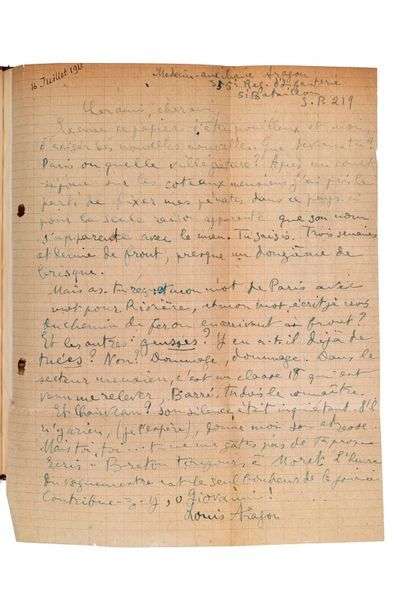 16 Juillet 1918
Médecin-auxiliaire Aragon
355e Rég. d'Infanterie
5e Bataillon
S.P. 219
Cher ami, cher ami
Excuse ce papier
d'exiger des nouvelles nouvelles. Que deviens-tu?
Paris ou quelle villégiature? Après un court
séjour sur les coteaux meusiens j'ai pris le
parti de fixer mes pénates dans ce pays-ci
pour la seule raison apparente que son nom
s'apparente avec le mien. Tu saisis. Trois semaines
et demie de front, presque un douzième de
brisque.
Mais as-tu reçu et mon mot de Paris avec
mot pour Rivière, et mon mot écrit je crois
du chemin de fer en arrivant au front?
Et les autres gensses? Y en a-t-il déjà de
tués? Non? Dommage, dommage. Dans le
secteur meusien, c'est un classe 18 qui est
venu me relever, Barri, tu dois le connaître.
Et Chouran? Son silence était inquiétant. S'il
n'a rien, (je l'espère), donne-moi son adresse.
Mais toi, toi... tu ne me gâtes pas de ta prose
Ecris à Breton toujours, à Moret l'heure
est le seul
Contribue-z-y, o Giovanni!
Louis Aragon